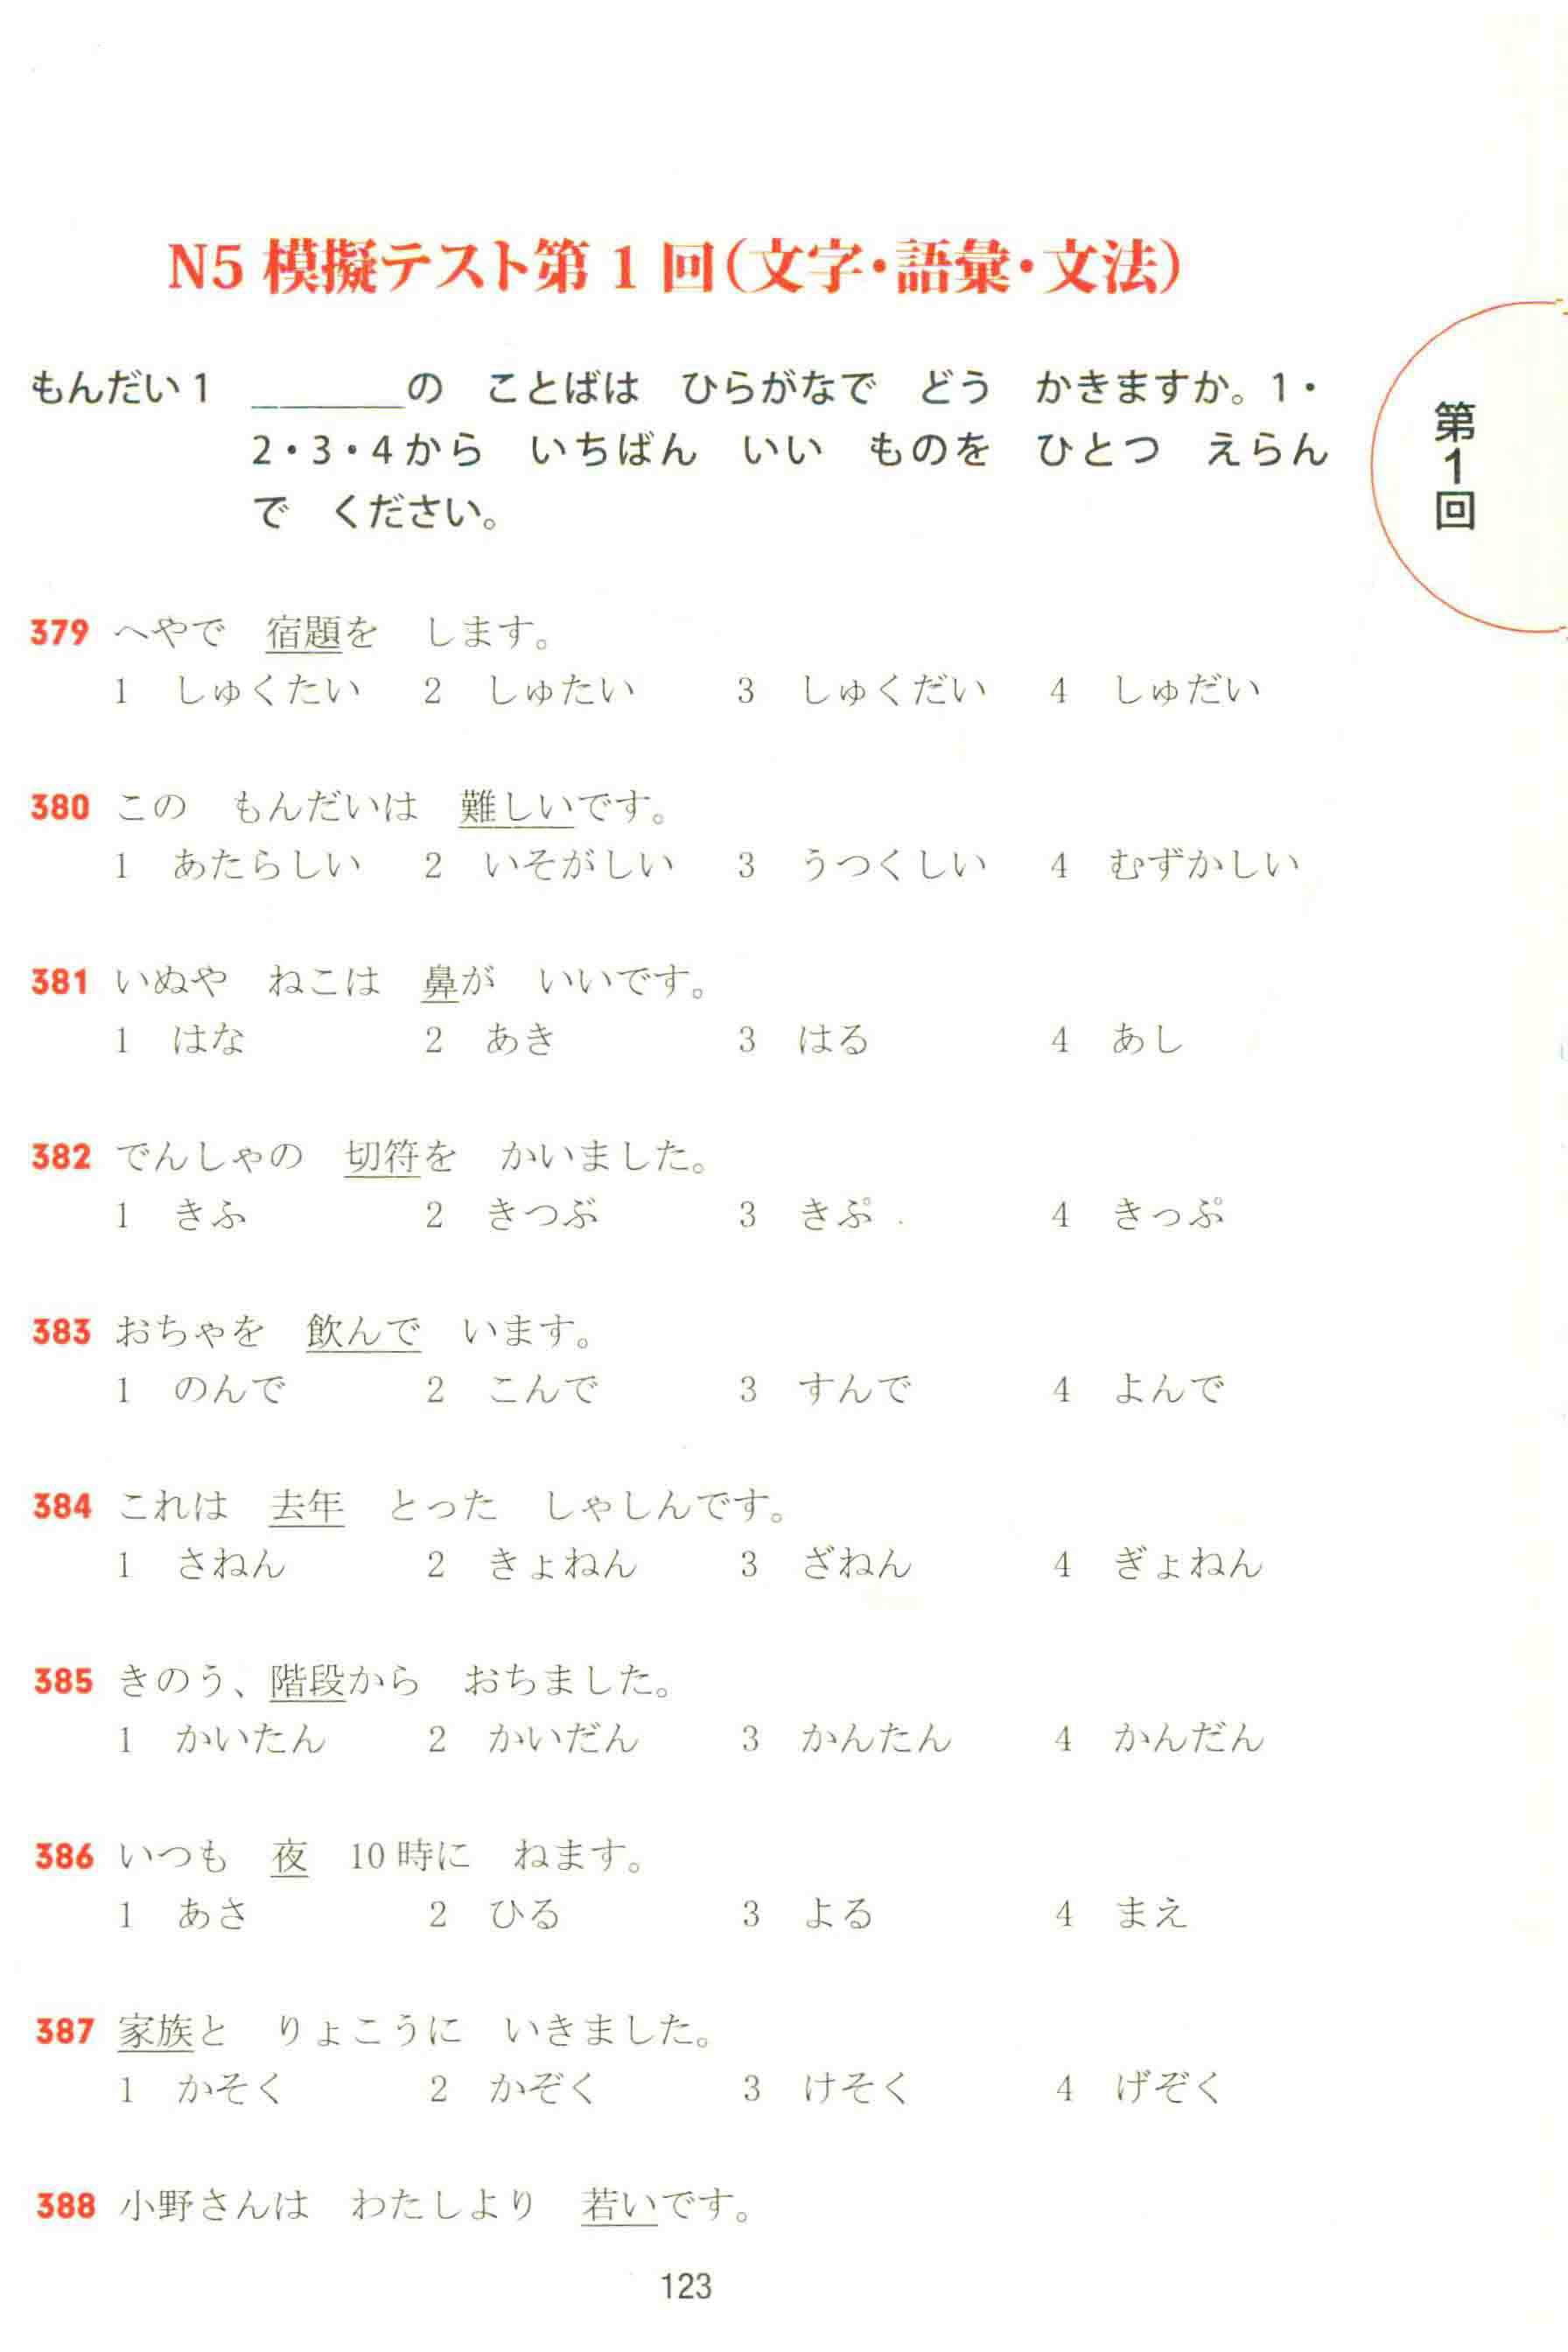 N5 模擬テスト第 1 回(文字・語彙・文法)
もんだい 1 ______の ことばは ひらがなで どう かきますか。1・
2・3・4から いちばん いい ものを ひとつ えらん
で ください。
第1回
379 へやで 宿題を します。
1 しゅくたい 2 しゅたい 3 しゅくだい 4 しゅだい
380 この もんだいは 難しいです。
1 あたらしい 2 いそがしい 3 うつくしい 4 むずかしい
381 いぬや ねこは 鼻が いいです。
1 はな 2 あき 3 はる 4 あし
382 でんしゃの 切符を かいました。
1 きふ 2 きつぶ 3 きぷ 4 きっぷ
383 おちゃを 飲んで います。
1 のんで 2 こんで 3 すんで 4 よんで
384 これは 去年 とった しゃしんです。
1 さねん 2 きょねん 3 ざねん 4 ぎょねん
385 きのう、階段から おちました。
1 かいたん 2 かいだん 3 かんたん 4 かんだん
386 いつも 夜 10時に ねます。
1 あさ 2 ひる 3 よる 4 まえ
387 家族と りょこうに いきました。
1 かそく 2 かぞく 3 けそく 4 げぞく
388 小野さんは わたしより 若いです。
123